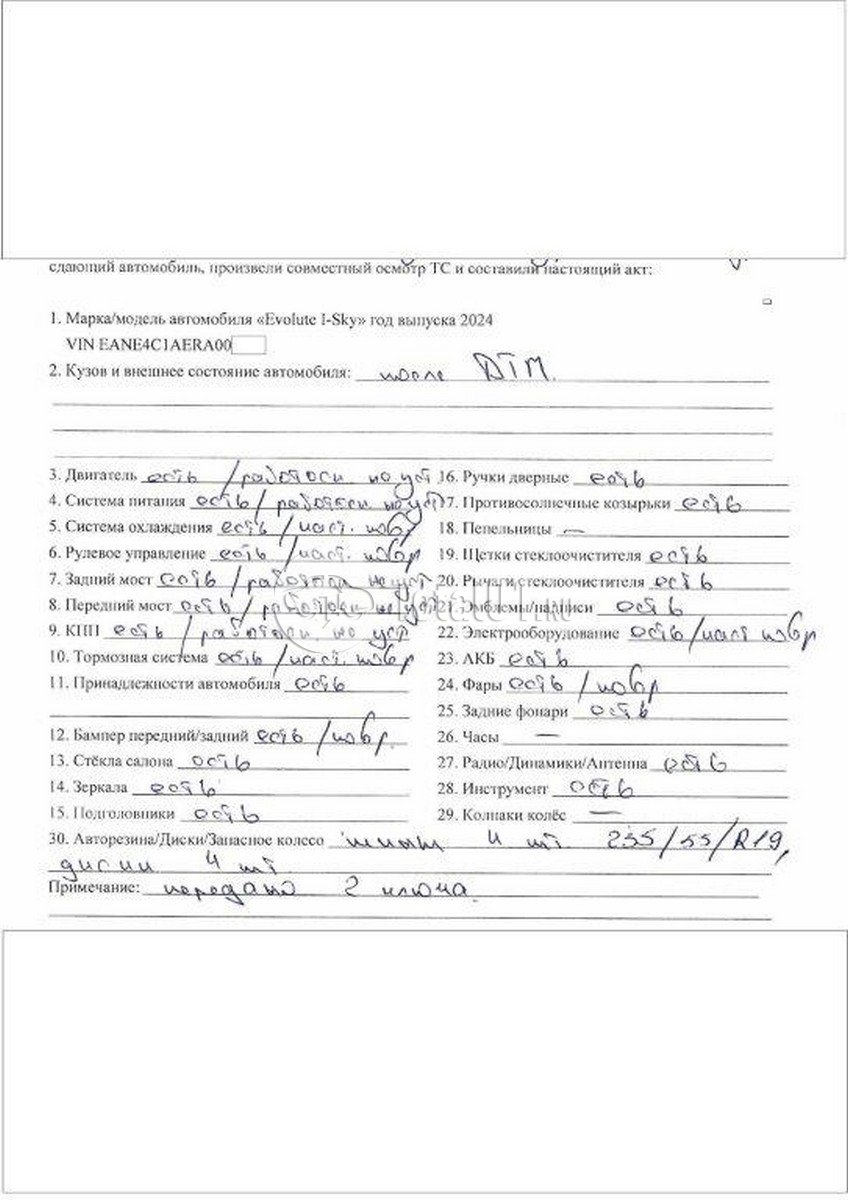 сдающий автомобиль, произвели совместный осмотр ТС и составили настоящий акт:
1. Марка/модель автомобиля «Evolute I-Sky» год выпуска 2024
VIN EANE4C1AERA00
2. Кузов и внешнее состояние автомобиля: после ДТП.
3. Двигатель есть / работосп. не уст
4. Система питания есть / работосп. не уст
5. Система охлаждения есть / част. повр
6. Рулевое управление есть / част. повр
7. Задний мост есть / работосп не уст
8. Передний мост есть / работосп не уст
9. КПП есть / работосп. не уст
10. Тормозная система есть / част. повр
11. Принадлежности автомобиля есть
12. Бампер передний/задний есть / повр.
13. Стёкла салона есть
14. Зеркала есть
15. Подголовники есть
16. Ручки дверные есть
17. Противосолнечные козырьки есть
18. Пепельницы —
19. Щетки стеклоочистителя есть
20. Рычаги стеклоочистителя есть
21. Эмблемы/надписи есть
22. Электрооборудование есть / част повр
23. АКБ есть
24. Фары есть / повр
25. Задние фонари есть
26. Часы —
27. Радио/Динамики/Антенна есть
28. Инструмент есть
29. Колпаки колёс —
30. Авторезина/Диски/Запасное колесо 4 шт. 235/55/R19,
диски 4 шт
Примечание: передано 2 ключа
TotalO1.ru